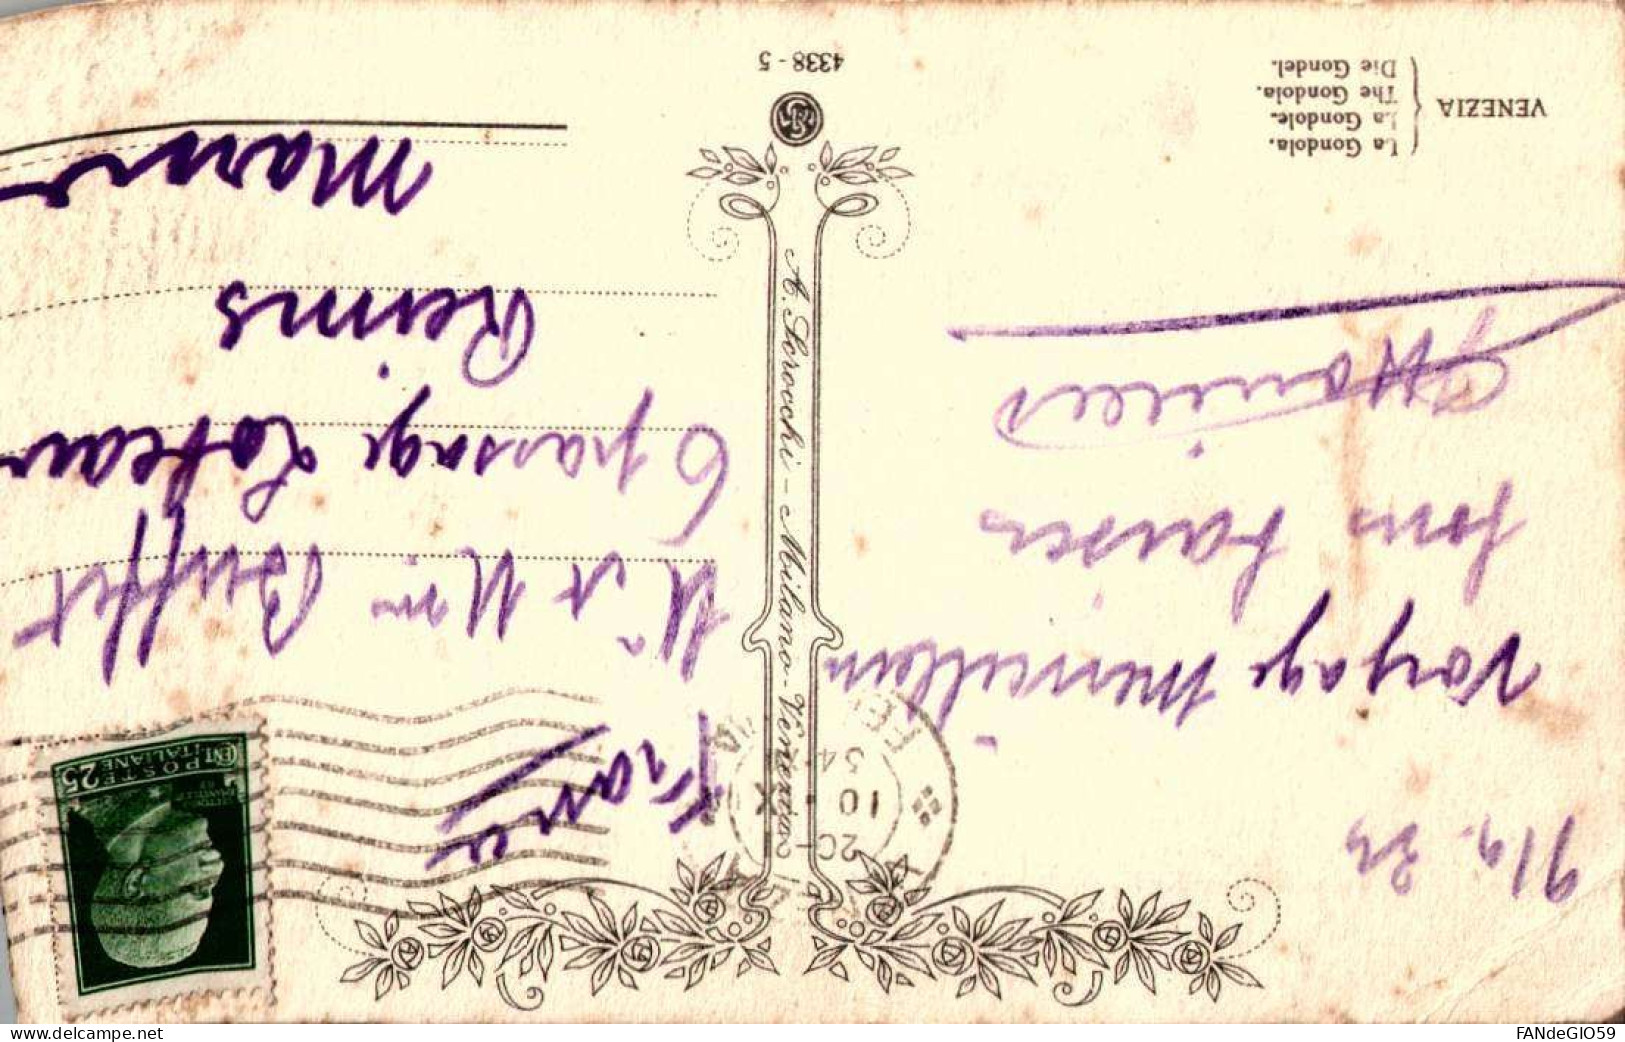 9/9. 34
Voyage Merveilleux
bons baisers
France
Mr et Mme Buffet
6 passage Lobeau
Reims
Marne
A. Scrocchi - Milano - Venezia
VENEZIA
La Gondola.
La Gondole.
The Gondola.
Die Gondel.
4338 - 5
POSTE ITALIANE
CENT 25
20
10
34
delcampe.net
FANdeGIO59